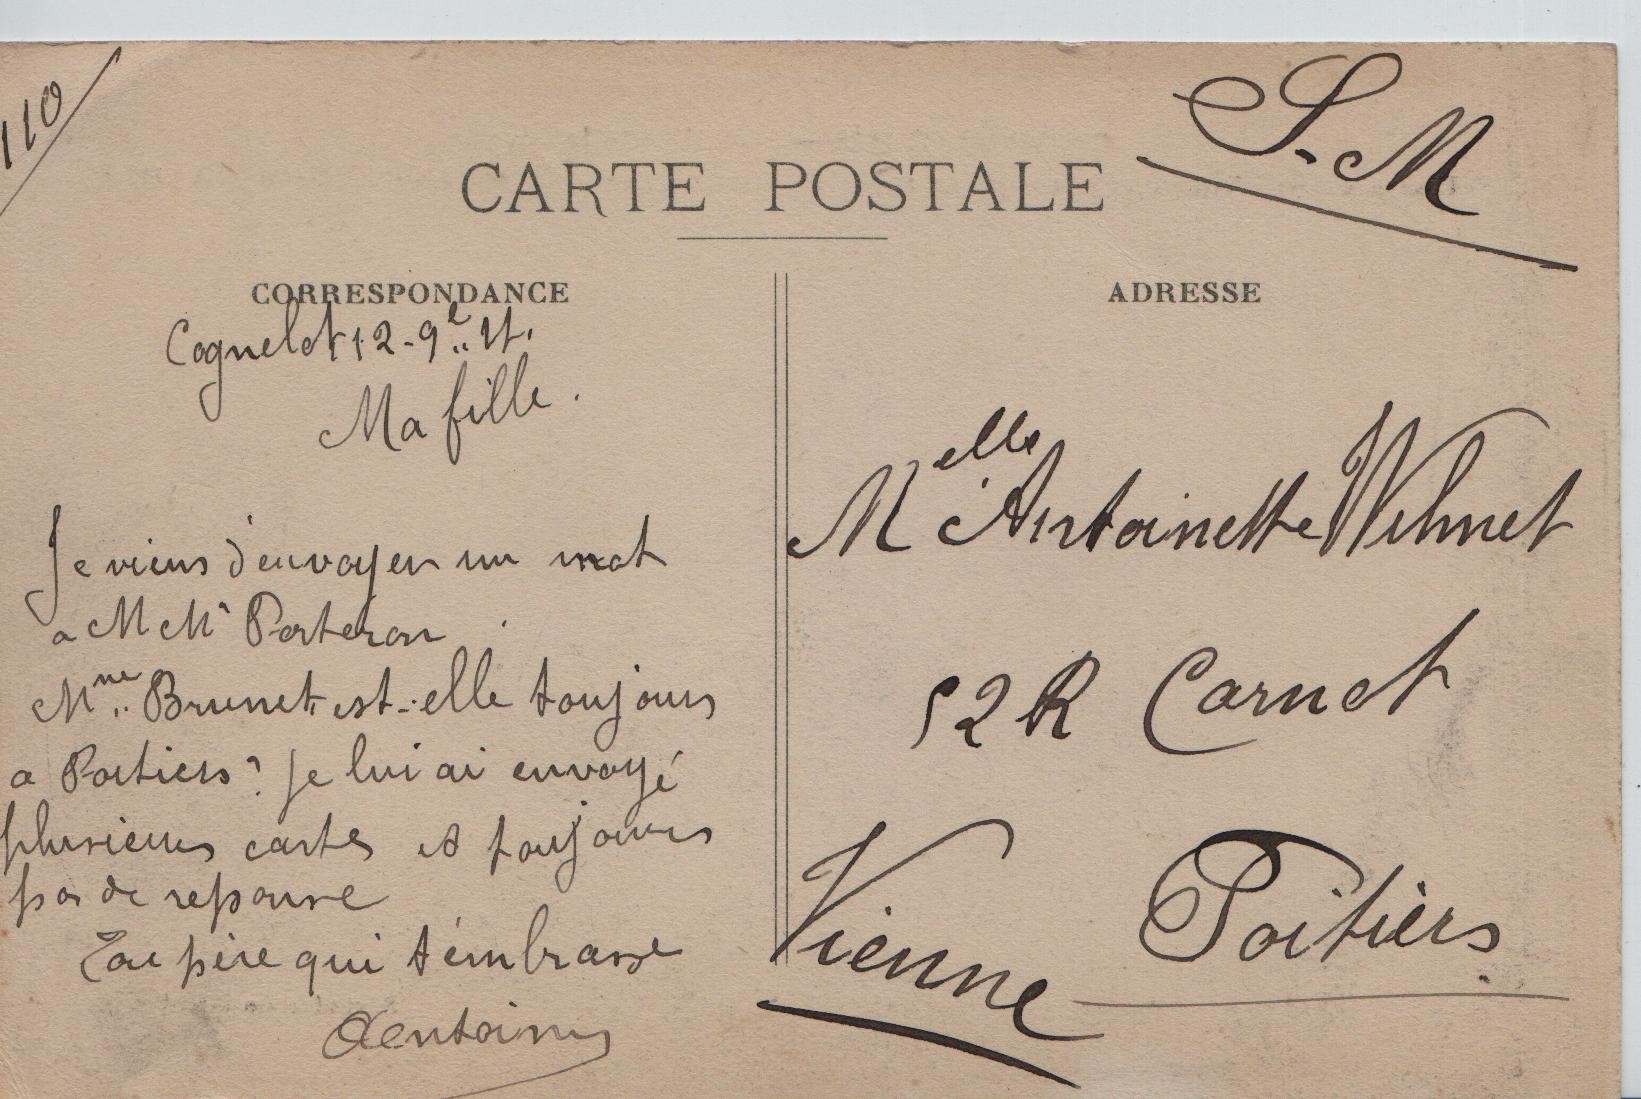 110
S-M
CARTE POSTALE
CORRESPONDANCE
Coguelot 12-9
Ma fille.
Je viens d'envoyer un mot
a M Mr Porteron
Mme Brunet est-elle toujours
a Poitiers? Je lui ai envoyé
plusieurs cartes et toujours
pas de reponse
Ton père qui t'embrasse
Antoine
ADRESSE
Melle Antoinette
52 R Carnot
Poitiers
Vienne